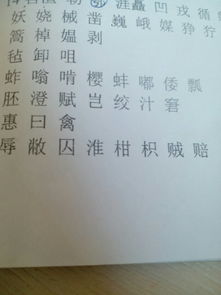 勒 鄂 涯 矗 凹 戎 循
妖 娆 械 凿 巍 峨 媒 狰 狞
篙 棹 媪 剥
毡 卸 咀
蚱 嗡 啃 樱 蚌 嘟 倭 瓢
胚 澄 赋 岂 绞 汁 窘
惠 曰 禽
辱 敝 囚 淮 柑 枳 贼 赔